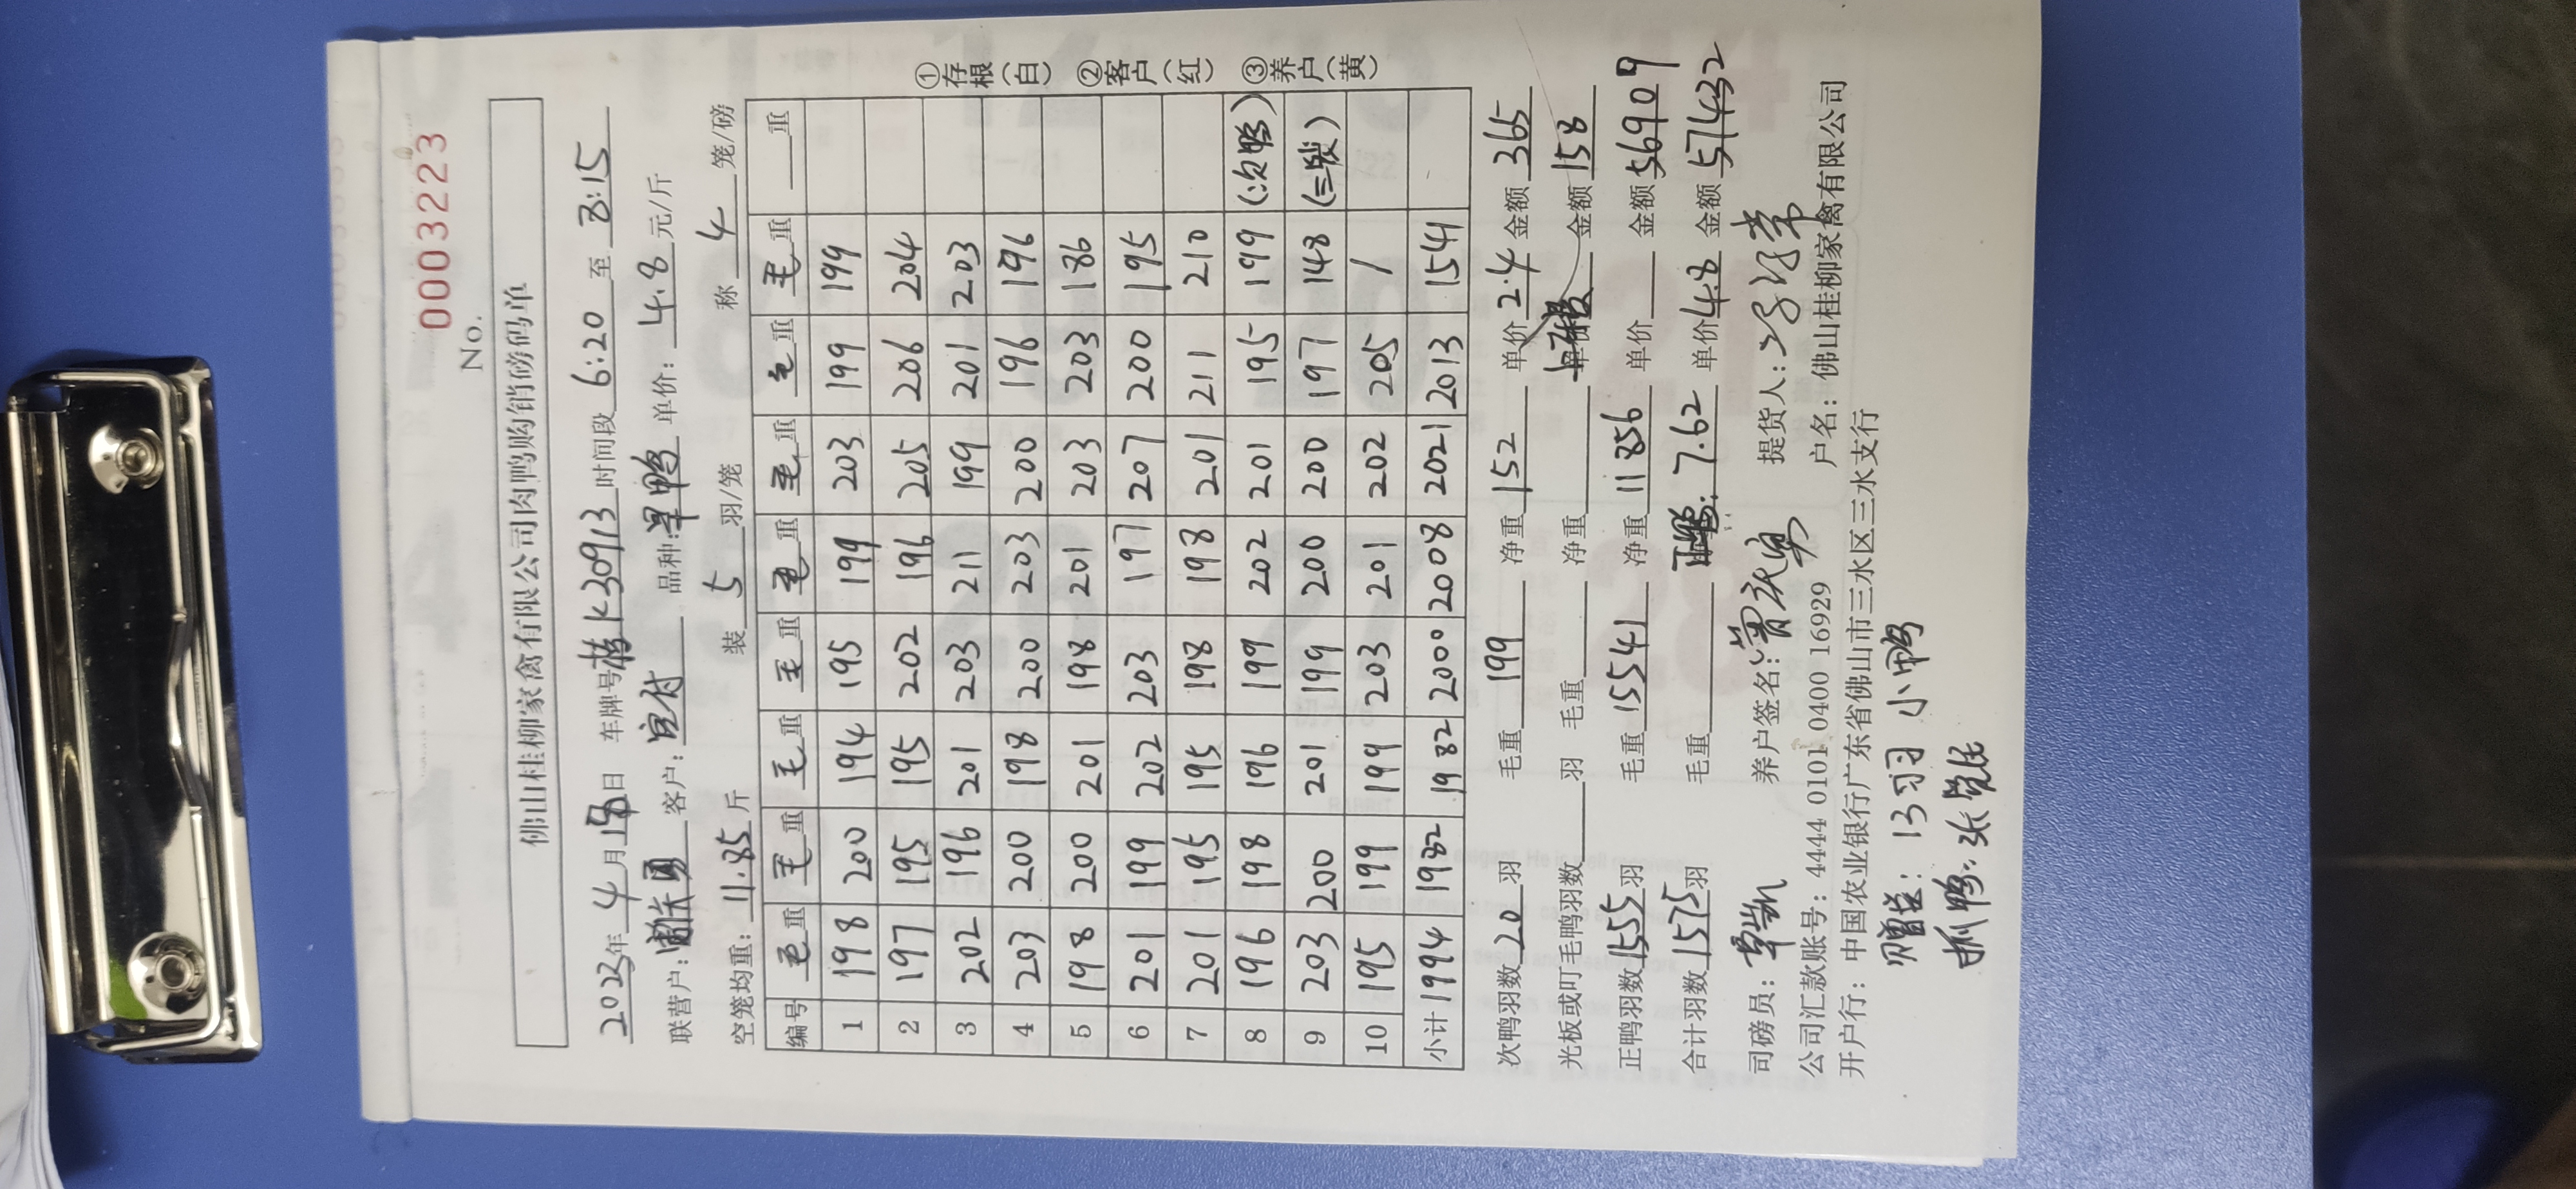 No. 0003223
佛山桂柳家禽有限公司肉鸭购销磅码单
2023年4月19日 车牌号桂K30913时间段6:20至8:15
联营户: 客户:宜付 品种:单鸭 单价:4.8元/斤
空笼均重:11.85斤 装5羽/笼 称4笼/磅
编号 毛重 毛重 毛重 毛重 毛重 毛重 毛重 毛重 重
1 198 200 194 195 199 203 199 199
2 197 195 195 202 196 205 206 204
3 202 196 201 203 211 199 201 203
4 203 200 198 200 203 200 196 196
5 198 200 201 198 201 203 203 186
6 201 199 202 203 197 207 200 195
7 201 195 195 198 198 201 211 210
8 196 198 196 199 202 201 195 199 (次鸭)
9 203 200 201 199 200 200 197 148 (三笼)
10 195 199 199 203 201 202 205 /
小计 1994 1982 1982 2000 2008 2021 2013 1541
①存根(白) ②客户(红) ③养户(黄)
次鸭羽数20羽 毛重199 净重152 单价2.4金额365
光板或叮毛鸭羽数 羽 毛重 净重 单价 金额158
正鸭羽数1555羽 毛重15541 净重11856 单价 金额56909
合计羽数1575羽 毛重 正鸭:7.62 单价4.8金额57432
司磅员: 养户签名: 提货人:
公司汇款账号:4444 0101 0400 16929 户名:佛山桂柳家禽有限公司
开户行:中国农业银行广东省佛山市三水区三水支行
赠送:13羽小鸭
抓鸭:张